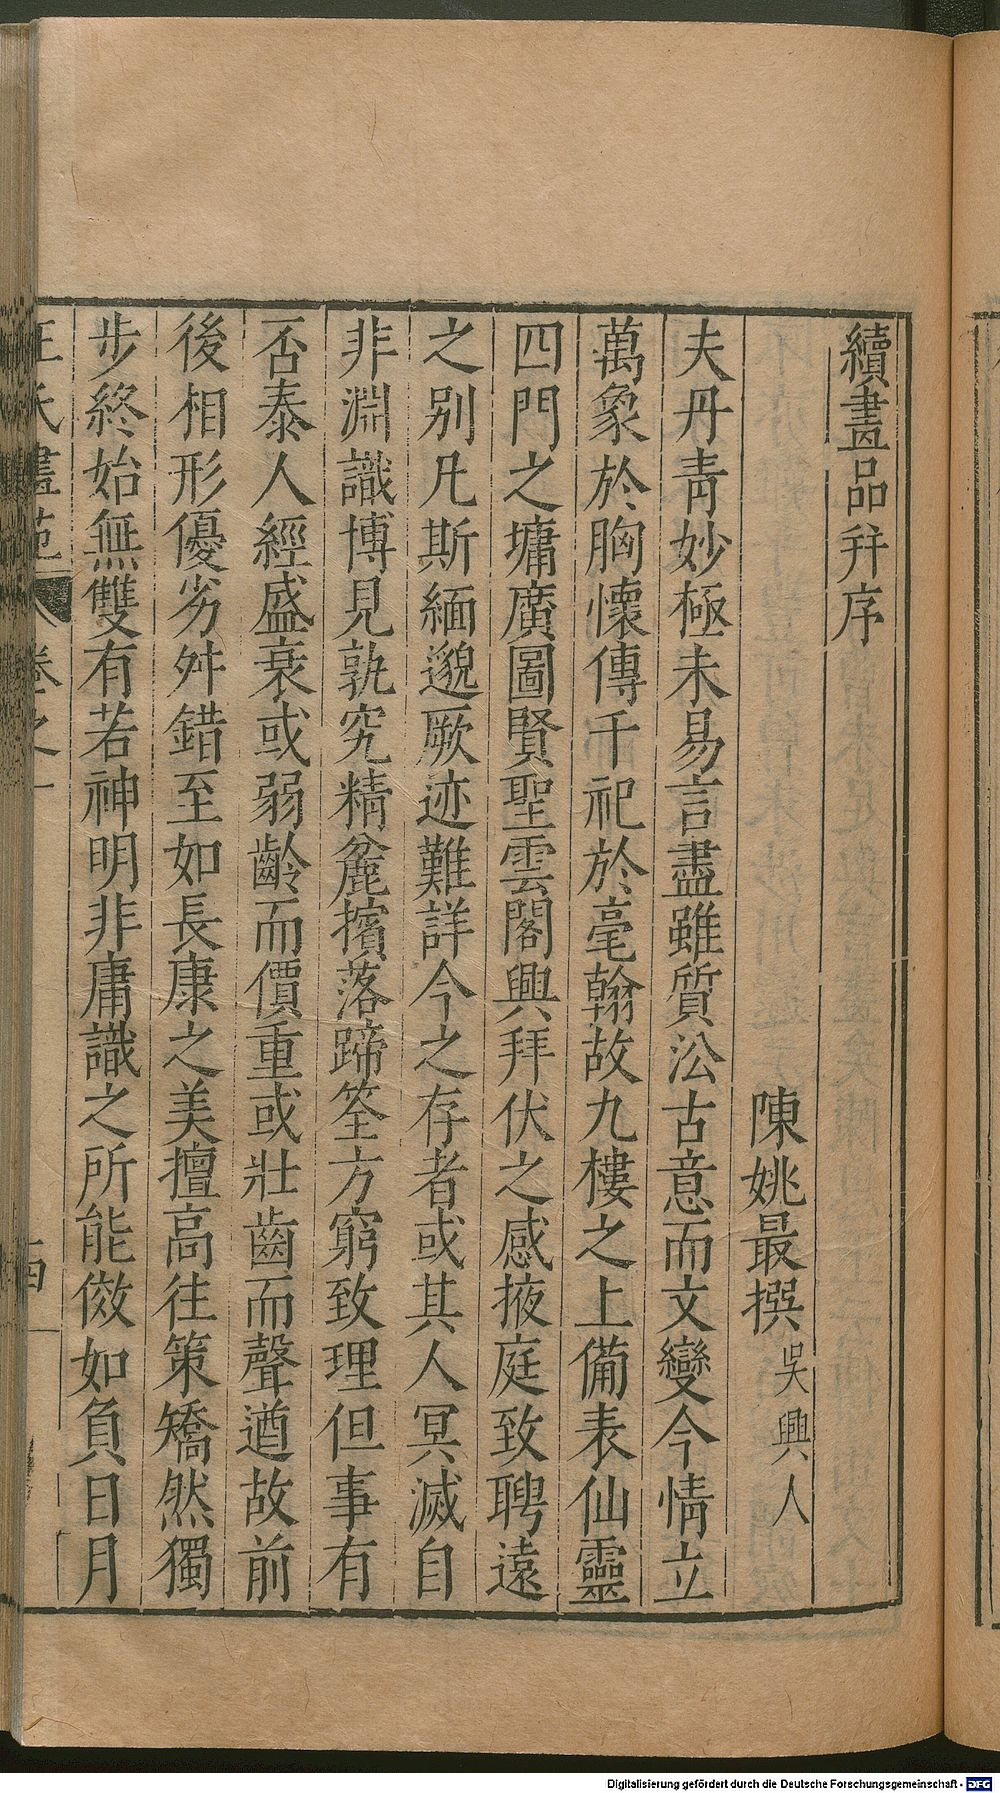 續畫品幷序
陳姚最撰 吳興人
夫丹青妙極未易言盡雖質㳂古意而文變今情立
萬象於胸懷傳千祀於毫翰故九樓之上備表仙靈
四門之墉廣圖賢聖雲閣興拜伏之感掖庭致聘遠
之别凡斯緬邈厥迹難詳今之存者或其人冥滅自
非淵識博見孰究精麄擯落蹄筌方窮致理但事有
否泰人經盛衰或弱齡而價重或壯齒而聲遒故前
後相形優劣舛錯至如長康之美擅高往策矯然獨
步終始無雙有若神明非庸識之所能傚如負日月
王氏畫苑 卷之一
Digitalisierung gefördert durch die Deutsche Forschungsgemeinschaft - DFG